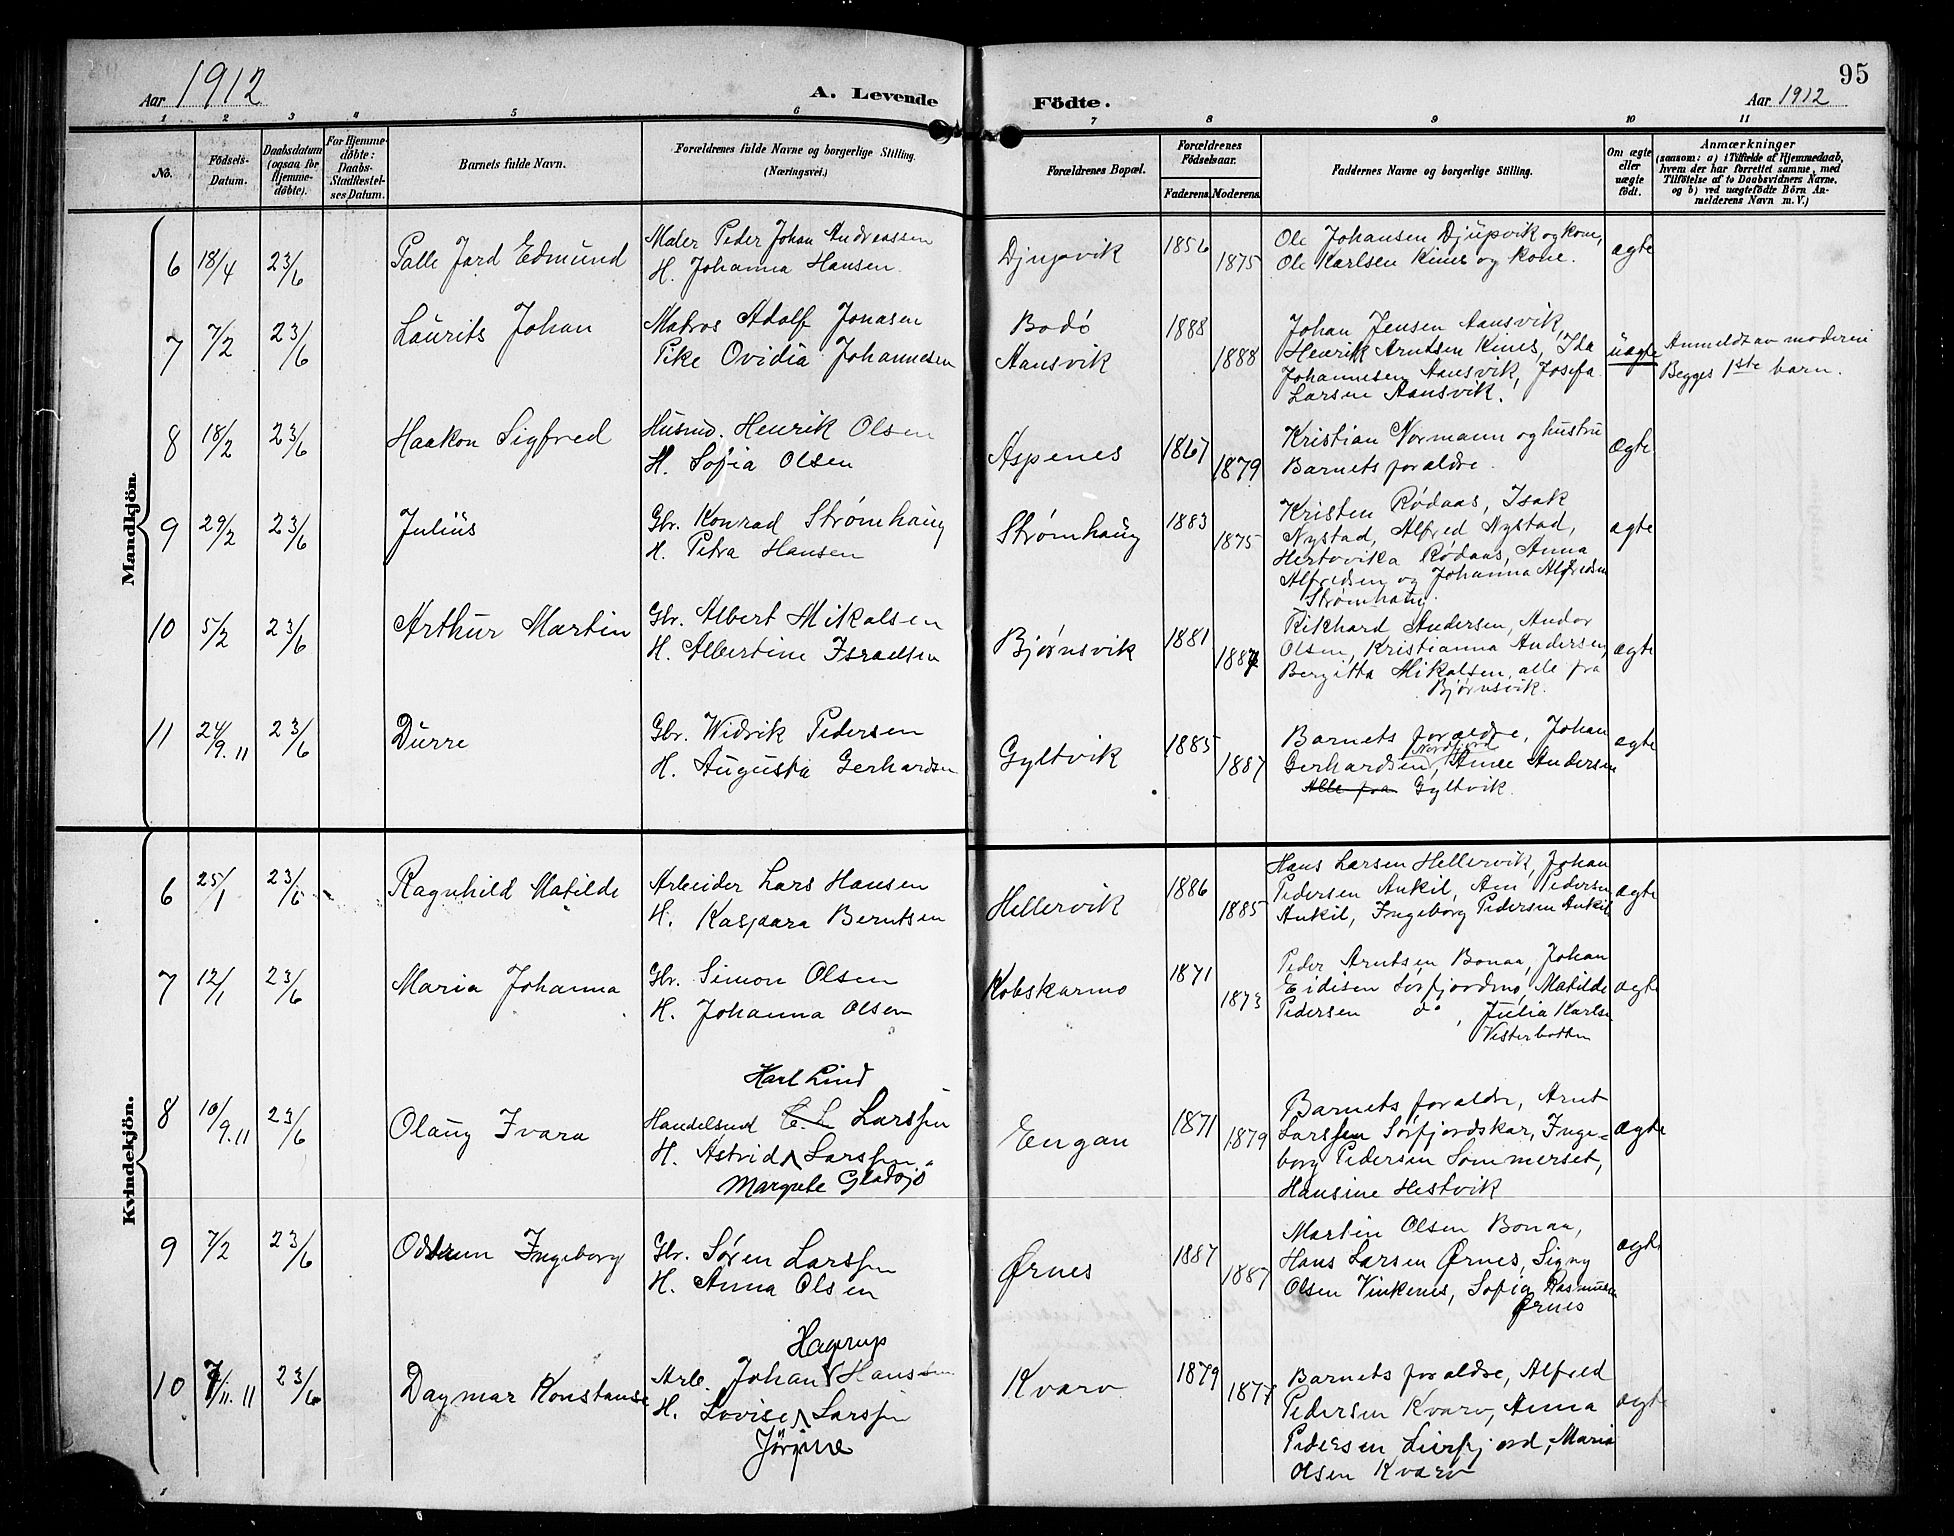 95
Aar 1912
A. Levende
Födte.
Aar 1912
1 2 3 4 5 6 7 8 9 10 11
No.
Födsels-
Datum.
Daabsdatum
(ogsaa for
Hjemme-
döbte).
For Hjemme-
döbte:
Daabs-
Stadfæstel-
ses Datum.
Barnets fulde Navn.
Forældrenes fulde Navne og borgerlige Stilling.
(Næringsvei.)
Forældrenes Bopæl.
Forældrenes
Födselsaar.
Faderens.
Moderens.
Faddernes Navne og borgerlige Stilling.
Om ægte
eller
uægte
født.
Anmærkninger
(saasom: a) i Tilfælde af Hjemmedaab,
hvem der har forrettet samme, med
Tilföielse af to Daabsvidners Navne,
og b) ved uægtefödte Börn An-
melderens Navn m. V.)
Mandkjön.
6 18/4 23/6 Palle Jard Edmund
Maler Peder Johan Andreassen
H. Johanna Hansen
Djupvik 1856 1875
Ole Johansen Djupvik og kone,
Ole Karlsen Kines og kone.
ægte
7 7/2 23/6 Laurits Johan
Matros Adolf Jonasen
Pike Ovidia Johannesen
Bodö
Aansvik
1888 1888
Johan Jensen Aansvik,
Henrik Arntsen Kines, Ida
Johannesen Aansvik, Josefa
Larsen Aansvik.
uægte
Anmeldt av moderen
Begges 1ste barn.
8 18/2 23/6 Haakon Sigfred
Husmd. Henrik Olsen
H. Sofia Olsen
Aspenes 1867 1879
Kristian Normann og hustru
Barnets forældre.
ægte
9 29/2 23/6 Julius
Gbr. Konrad Strømhaug
H. Petra Hansen
Strømhaug 1883 1875
Kristen Rødaas, Isak
Nystad, Alfred Nystad,
Hertvika Rødaas, Anna
Alfredsen og Johanna Alfredsen
Strømhaug.
ægte
10 5/2 23/6 Arthur Martin
Gbr. Albert Mikalsen
H. Albertine Israelsen
Bjørnsvik 1881
Rikhard Andersen, Andor
Olsen, Kristianna Andersen,
Bergitta Mikalsen, alle fra
Bjørnsvik.
ægte
11 24/9.11 23/6 Durre
Gbr. Widrik Pedersen
H. Augusta Gerhardsen
Gyltvik 1885 1887
Barnets forældre, Johan
Nordfjord
Gerhardsen, Anne Andersen
Alle fra Gyltvik.
ægte
Kvindekjön.
6 25/1 23/6 Ragnhild Matilde
Arbeider Lars Hansen
H. Kaspara Berntsen
Hellervik 1886 1885
Hans Larsen Hellervik, Johan
Pedersen Ankil, Ane Pedersen
Ankil, Ingeborg Pedersen Ankil
ægte
7 12/1 23/6 Maria Johanna
Gbr. Simon Olsen
H. Johanna Olsen
Kobskarmo 1871 1873
Peder Arntsen Bonaa, Johan
Eidisen Sørfjordmo, Matilde
Pedersen do, Julia Karls
Vesterbotten
ægte
8 10/9.11 23/6 Olaug Ivara
Karl Lind
Handelsmd C. L. Larssen
H. Astrid Larssen
Margrete Gladsjø
Engan 1871 1879
Barnets forældre, Arnt
Larssen Sørfjordskar, Inge-
borg Pedersen Sommerset,
Hansine Hestvik
ægte
9 7/2 23/6 Oddrun Ingeborg
Gbr. Søren Larssen
H. Anna Olsen
Ørnes 1887 1887
Martin Olsen Bonaa,
Hans Larsen Ørnes, Signy
Olsen Vinkenes, Sofia Rasmussen
Ørnes
ægte
10 7/11.11 23/6 Dagmar Konstanse
Hagerup
Arb. Johan Hansen
H. Lovise Larssen
Jörgine
Kvarv 1879 1877
Barnets forældre, Alfred
Pedersen Kvarv, Anna
Pedersen Leirfjord, Maria
Olsen Kvarv
ægte